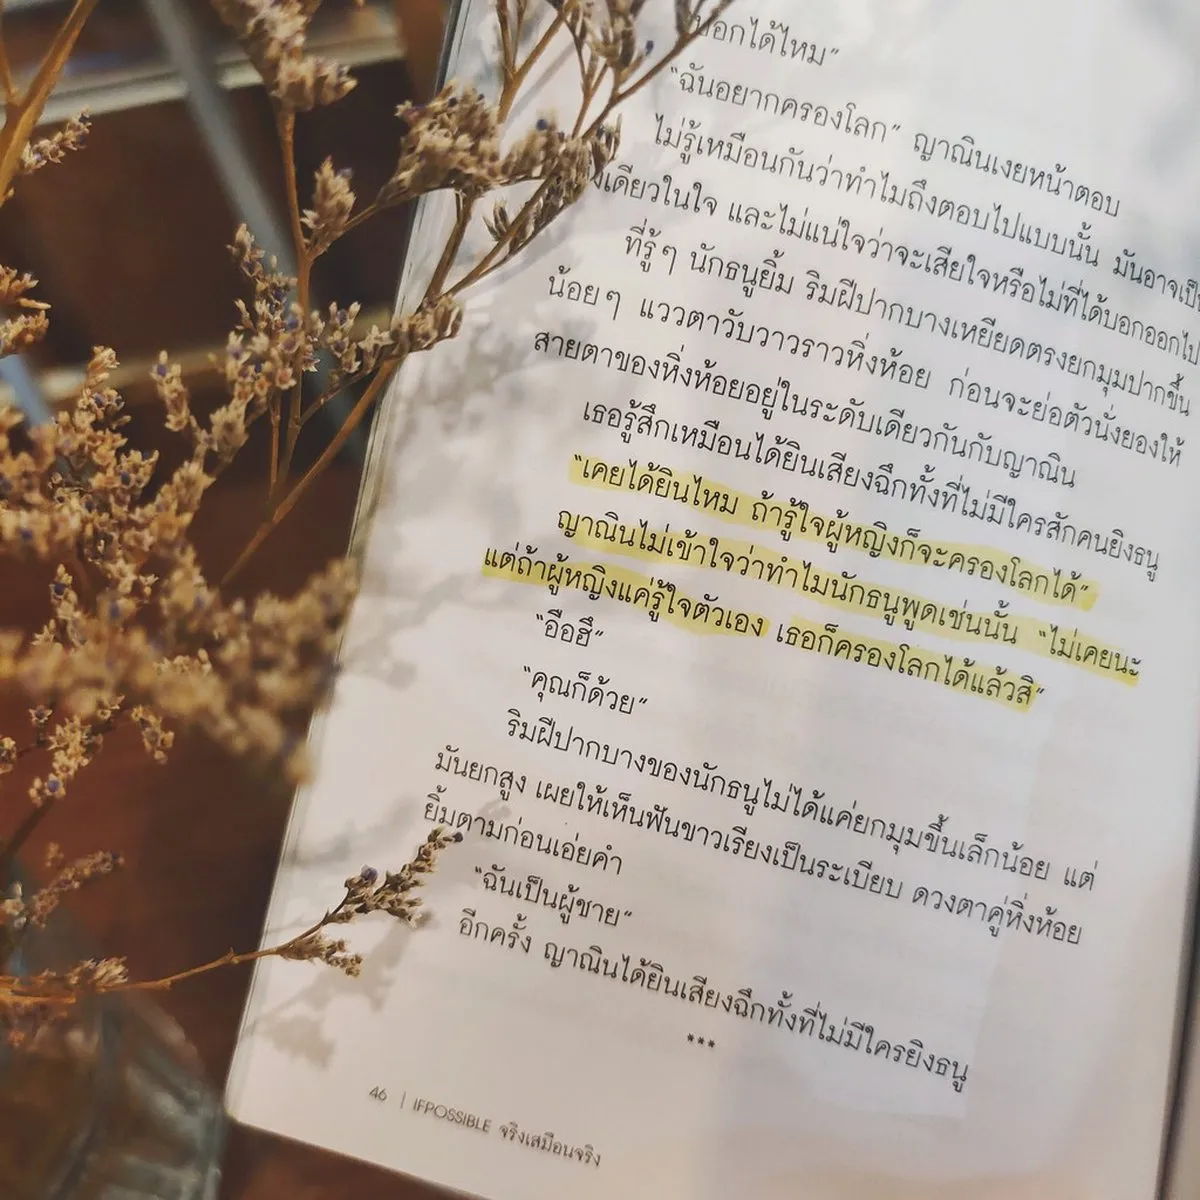 บอกได้ไหม”
“ฉันอยากครองโลก” ญาณินเงยหน้าตอบ
ไม่รู้เหมือนกันว่าทำไมถึงตอบไปแบบนั้น มันอาจเป็น
เดียวในใจ และไม่แน่ใจว่าจะเสียใจหรือไม่ที่ได้บอกออกไป
ที่รู้ๆ นักธนูยิ้ม ริมฝีปากบางเหยียดตรงยกมุมปากขึ้น
น้อยๆ แววตาวับวาวราวหิ่งห้อย ก่อนจะย่อตัวนั่งยองให้
สายตาของหิ่งห้อยอยู่ในระดับเดียวกันกับญาณิน
เธอรู้สึกเหมือนได้ยินเสียงฉึกทั้งที่ไม่มีใครสักคนยิงธนู
“เคยได้ยินไหม ถ้ารู้ใจผู้หญิงก็จะครองโลกได้”
ญาณินไม่เข้าใจว่าทำไมนักธนูพูดเช่นนั้น “ไม่เคยนะ
แต่ถ้าผู้หญิงแค่รู้ใจตัวเอง เธอก็ครองโลกได้แล้วสิ”
“อือฮึ”
“คุณก็ด้วย”
ริมฝีปากบางของนักธนูไม่ได้แค่ยกมุมขึ้นเล็กน้อย แต่
มันยกสูง เผยให้เห็นฟันขาวเรียงเป็นระเบียบ ดวงตาคู่หิ่งห้อย
ยิ้มตามก่อนเอ่ยคำ
“ฉันเป็นผู้ชาย”
อีกครั้ง ญาณินได้ยินเสียงฉึกทั้งที่ไม่มีใครยิงธนู
***
46 | IFPOSSIBLE จริงเสมือนจริง